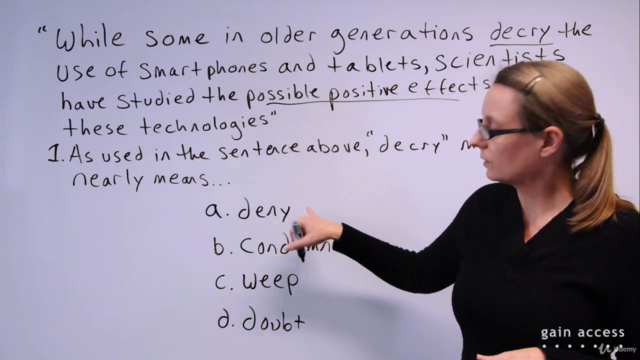 "While some in older generations decry the
use of smartphones and tablets, scientists
have studied the possible positive effects
these technologies"
1. As used in the sentence above, "decry"
nearly means...
a. deny
b.
c. weep
d. doubt
gain access
Udemy